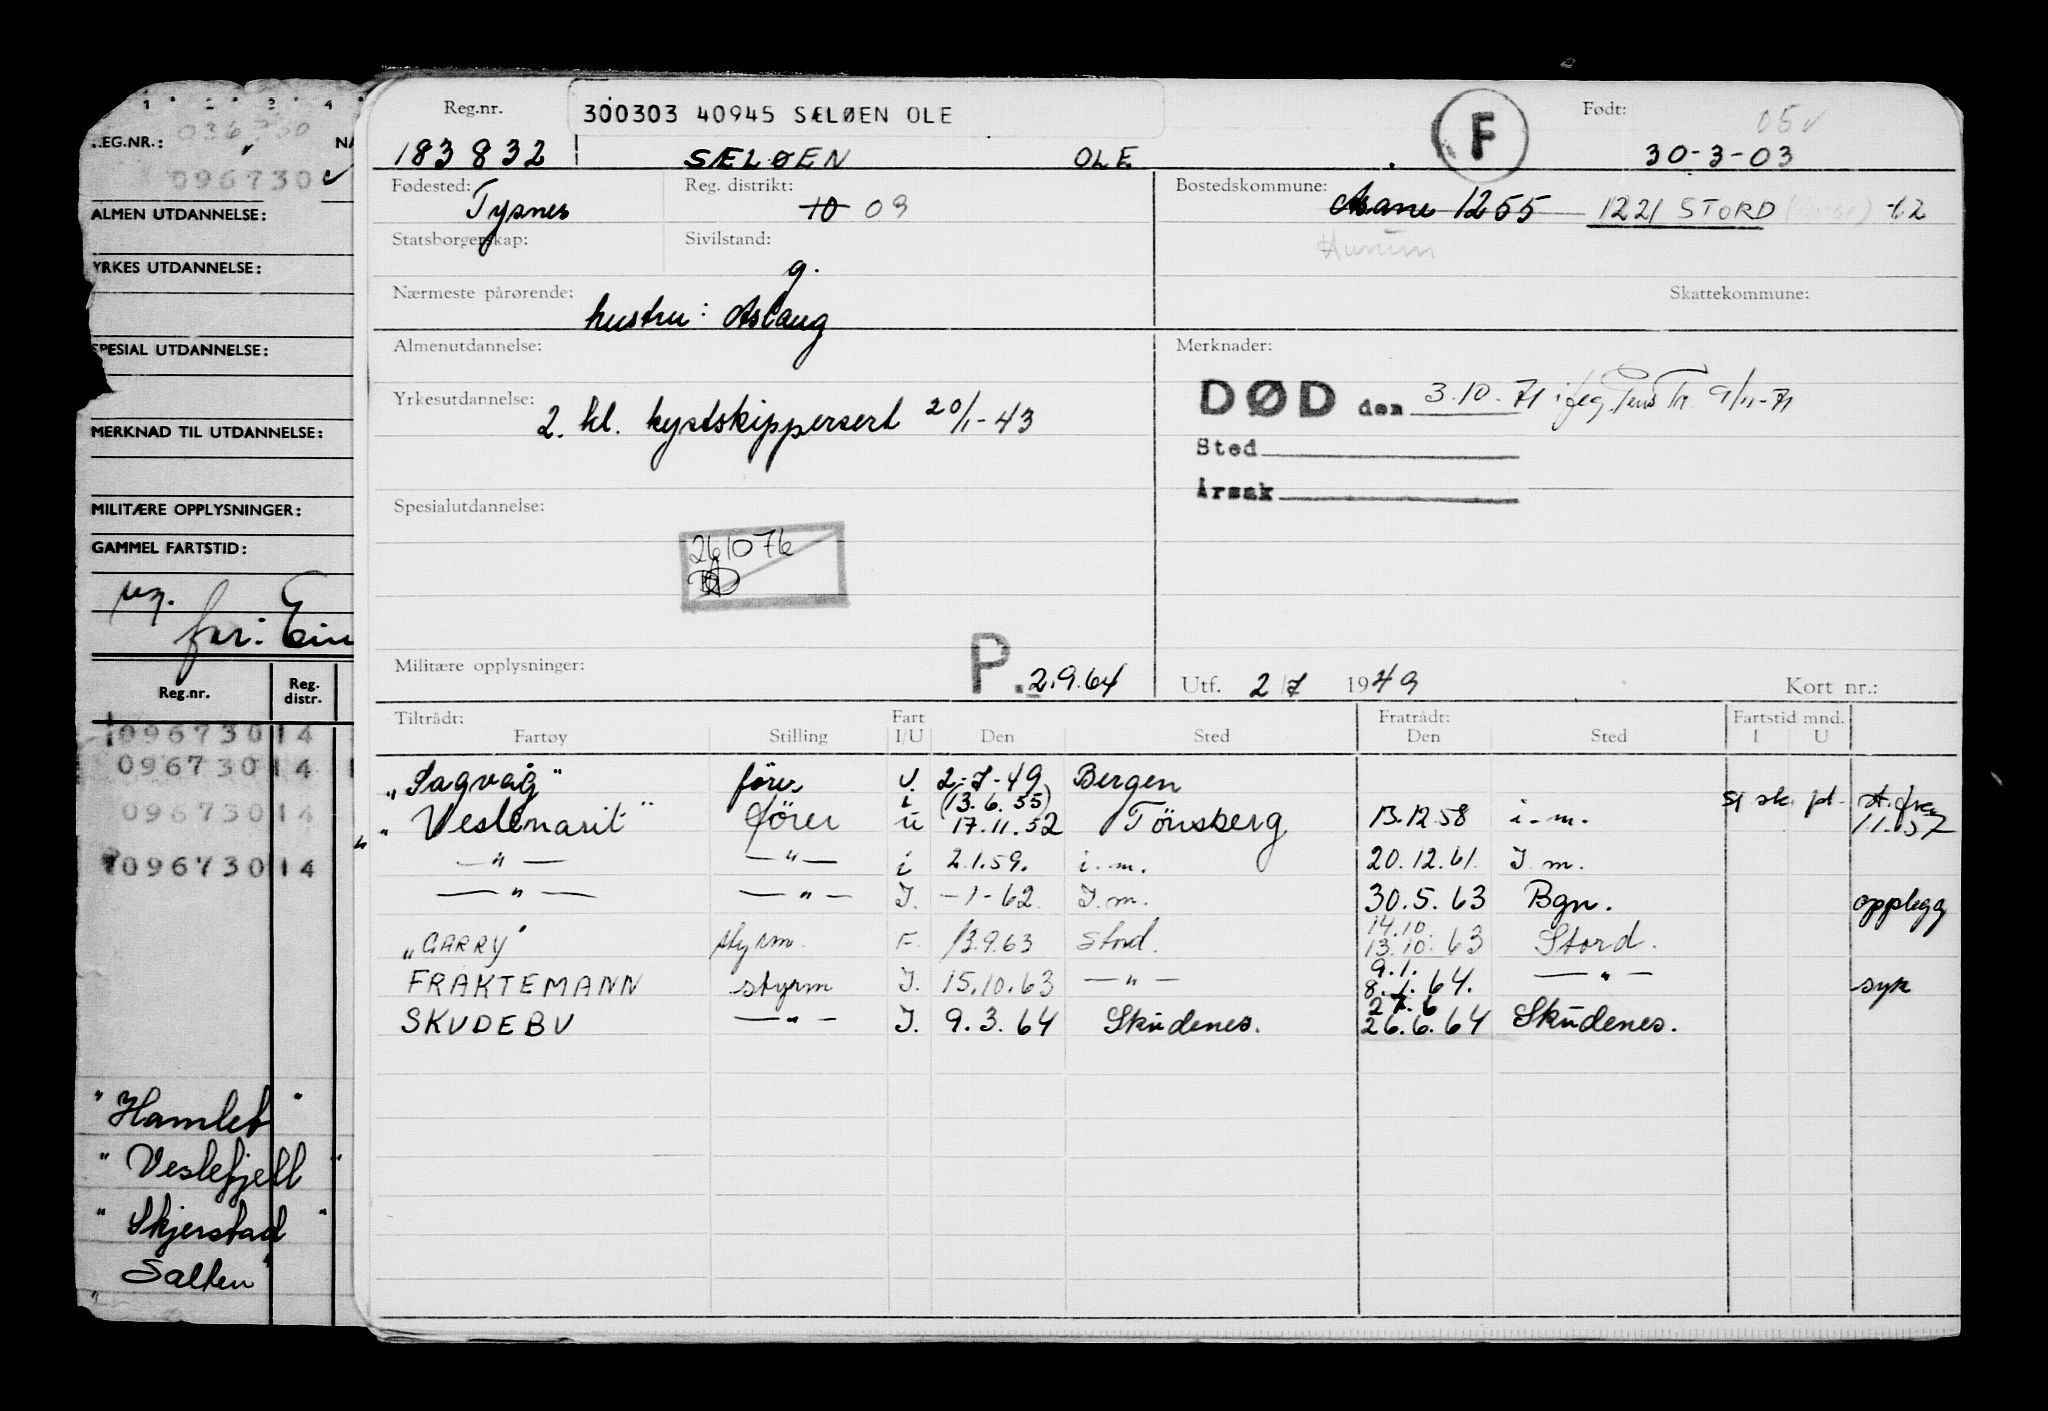 1 2 3 4
REG.NR.: 036730 NA
096730
ALMEN UTDANNELSE:
YRKES UTDANNELSE:
SPESIAL UTDANNELSE:
MERKNAD TIL UTDANNELSE:
MILITÆRE OPPLYSNINGER:
GAMMEL FARTSTID:
ug.
far: Ein
Reg.nr. Reg. distr.
096730 14
096730 14
096730 14
096730 14
"Hamlet"
"Veslefjell"
"Skjerstad"
"Salten"
Reg.nr. 300303 40945 SÆLØEN OLE F Født: 05
183832 SÆLØEN OLE 30-3-03
Fødested: Tysnes Reg. distrikt: 10 09 Bostedskommune: Åsane 1255 1221 STORD
Statsborgerskap: Sivilstand: g.
Nærmeste pårørende: hustru: Aslaug Skattekommune:
Almenutdannelse: Merknader:
DØD den 3.10.71 9/11-71
Yrkesutdannelse: 2. kl. kystskippersert 20/1-43
Sted
Årsak
Spesialutdannelse:
261076
Militære opplysninger: P. 2.9.64 Utf. 2/7 1949 Kort nr.:
Tiltrådt: Fart Fratrådt: Fartstid mnd.
Fartøy Stilling I/U Den Sted Den Sted I U
"Sagvåg" fører U. 2-7-49 Bergen
i (13.6.55)
"Veslemarit" fører u 17.11.52 Tönsberg 13.12.58 i.m. 1.1.57
—"— —"— i 2.1.59. i.m. 20.12.61. I.m.
—"— —"— I. -1-62. I.m. 30.5.63 Bgn. opplegg
"GARRY" styrm. F. 13.9.63 Stord. 14.10. 13.10.63 Stord.
FRAKTEMANN styrm I. 15.10.63 —"— 9.1. 8.1.64. —"— syk
SKUDEBU —"— I. 9.3.64 Skudenes. 27.6 26.6.64 Skudenes.